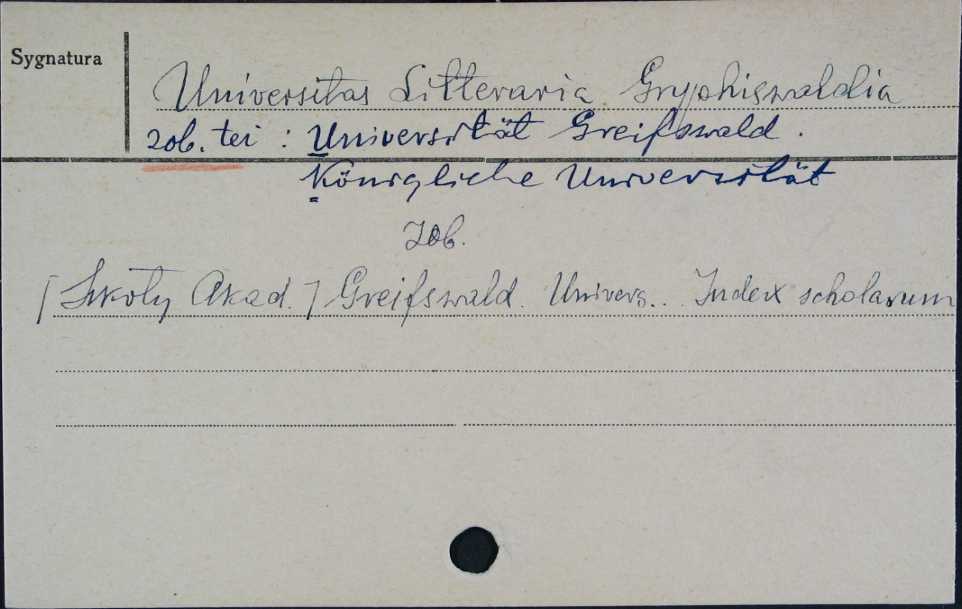 Sygnatura
Universitas Litteraria Gryphiswaldia
zob. tei : Universität Greifswald.
Königliche Universität
Zob.
[Szkoły Akad.] Greifswald. Univers.. Index scholarum